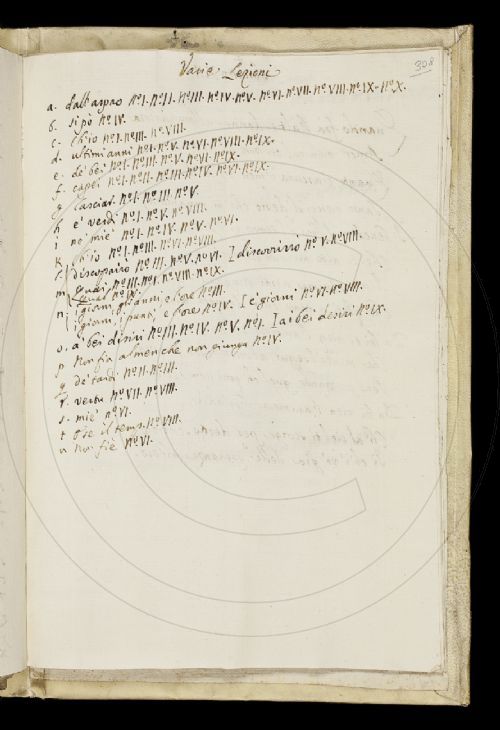 Varie Lezioni
308
a. dall'aspro No.I. No.II. No.III. No.IV. No.V. No.VI. No.VII. No.VIII. No.IX. No.X.
b. si pò No.IV.
c. ch'io No.I. No.III. No.VIII.
d. ultimi anni No.I. No.V. No.VI. No.VIII. No.IX.
e. de' bei No.I. No.III. No.V. No.VI. No.IX.
f. capei No.I. No.II. No.III. No.IV. No.VI. No.IX.
g. lasciar No.I. No.III. No.V.
h e' verdi No.I. No.V. No.VIII.
i no' mie' No.I. No.IV. No.V. No.VI.
k ch'io No.I. No.III. No.VI. No.VIII.
l discopriro No.III. No.V. No.VI. I discovrirò No.V. No.VIII.
m quai No.III. No.I. No.VIII. No.IX.
quali No.IV.
n. i giorni, gli anni, e l'ore No.III.
i giorni, i punti, e l'ore No.IV. I e' giorni No.VI. No.VIII.
o. a' bei disiri No.III. No.IV. No.V. No.I. I ai bei desiri No.IX.
p Non fia almen che non giunga No.IV.
q de' tardi No.II. No.III.
r. No.VII. No.VIII.
s. mie' No.VI.
t il temp. No.VIII.
u Non fie No.VI.